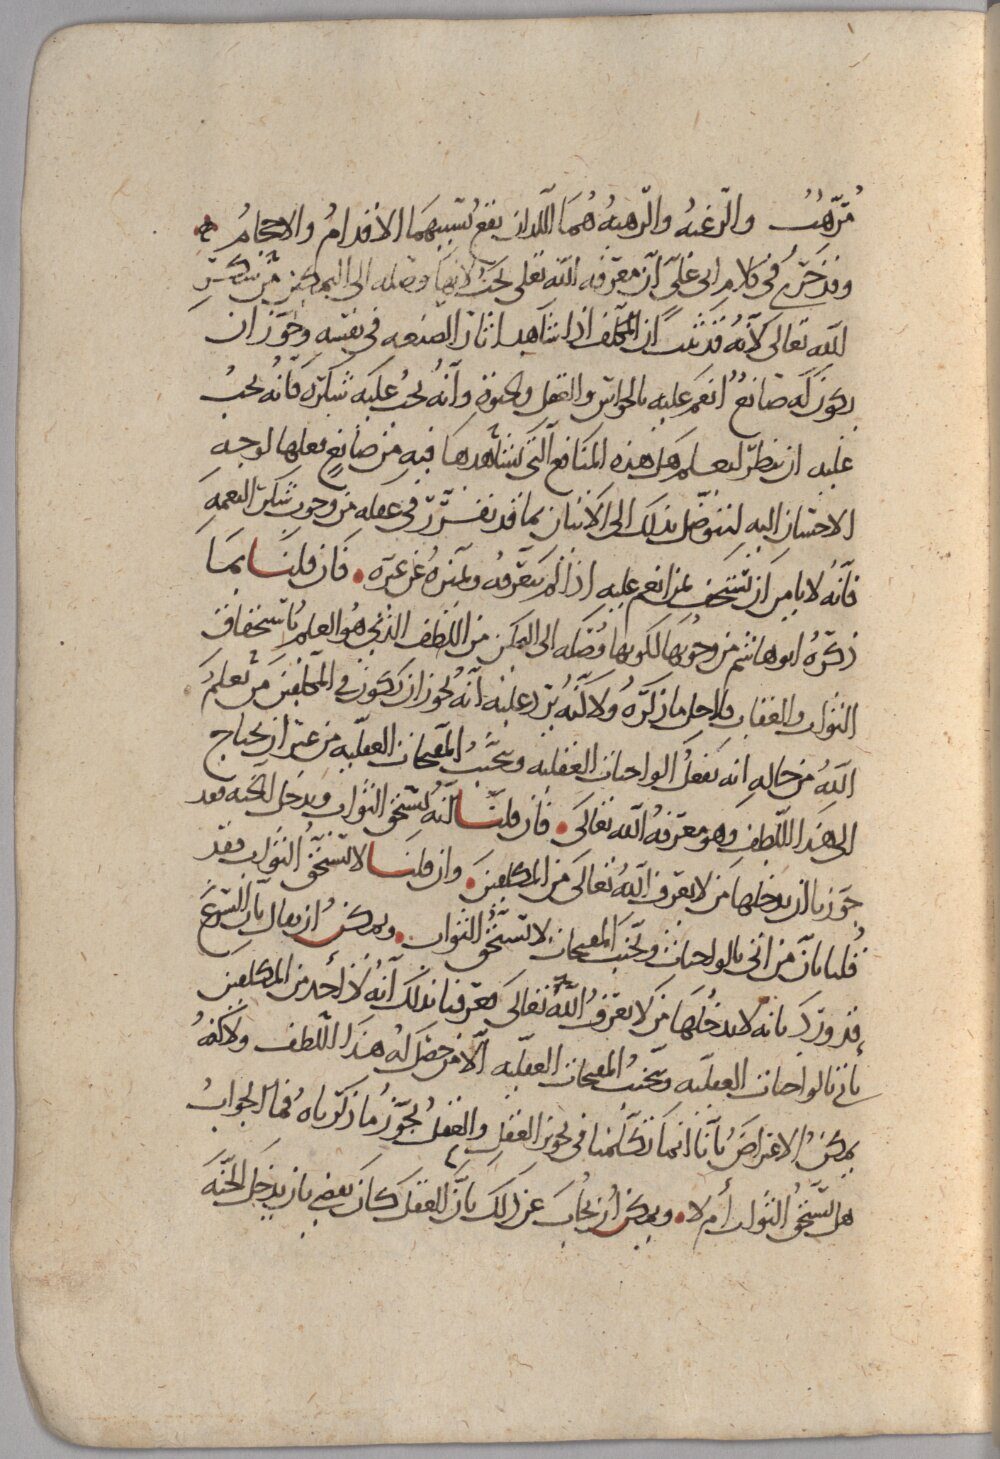 مرهب والرغبه والرهبه هما اللذان يقع بسببهما الاقدام والاحجام
وقد جرى في كلام ابي علي أن معرفه الله تعلى تجب لانها وصله الى التمكن من شكر
الله تعالى لأنه قد ثبت ان المكلف اذا شاهد اثار الصنعه في نفسه وجوز ان
يكون له صانعٌ أنعم عليه بالحواس والعقل والحيوة وأنه يجب عليه شكره فانه يجب
عليه ان ينظر ليعلم هل هذه المنافع التي يشاهدها فيه من صانعٍ فعلها لوجه
الاحسان اليه ليتوصل بذلك الى الاتيان بما قد تقرر في عقله من وجوب شكر النعمه
فأنه لا يامن ان يستخف بمن انعم عليه اذا لم يعرفه ويميزه عن غيره فان قلنا بما
ذكره ابو هاشم من وجوبها لكونها وصله الى التمكن من اللطف الذي هو العلم باستحقاق
الثواب والعقاب فلاجل ما ذكره ولانه يرد عليه أنه يجوز ان يكون في المكلفين من يعلم
الله من حاله انه يفعل الواجبات العقليه ويتجنب المقبحات العقليه من غير ان يحتاج
الى هذا اللطف وهو معرفه الله تعالى فان قلنا انه يستحق الثواب ويدخل الجنه فقد
جوزنا ان يدخلها من لا يعرف الله تعالى من المكلفين وان قلنا لا يستحق الثواب فقد
قلنا بأن من أتى بالواجبات وتجنب المقبحات لا يستحق الثواب ويمكن أن يقال بأن الشرع
قد ورد بانه لا يدخلها من لا يعرف الله تعالى فعرفنا بذلك أنه لا أحد من المكلفين
يأتي بالواجبات العقليه ويتجنب المقبحات العقليه الا من حصل له هذا اللطف ولأنه
يمكن الاعتراض بأنا انما تكلمنا في تجويز العقل والعقل يجوز ما ذكرناه فما الجواب
هل يستحق الثواب أم لا ويمكن أن يجاب عن ذلك بأن العقل كان يقضي بان يدخل الجنه